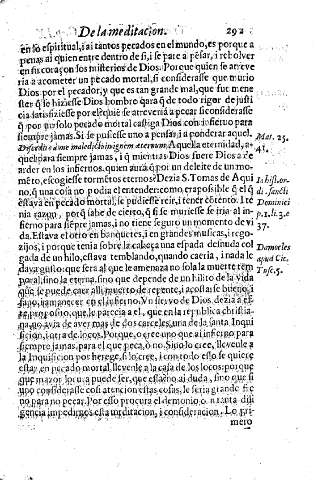 De la meditacion. 292
en lo espiritual, i ai tantos pecados en el mundo, es porque a
penas ai quien entre dentro de si, i se pare a pẽsar, i rebolver
en su coraçon los misterios de Dios. Porque quien se atreve
ria a acometer un pecado mortal, si considerasse que murio
Dios por el pecador, y que es tan grande mal, que fue mene
ster q̃ se hiziesse Dios hombre para q̃ de todo rigor de justi
cia satisfiziesse por el; equiẽ se atreveria a pecar si considerasse
q̃ por un solo pecado mortal castiga Dios con infierno para
siempre jamas. Si se pusiesse uno a pensar, i a ponderar aquel.
Discedite a me maledicti in ignem æternum. Aquella eternidad, a-
quel para siempre jamas, i q̃ mientras Dios fuere Dios a de
arder en los infiernos. quien aura q̃ por un deleite de un mo-
mẽto, escogiesse tormẽtos eternos? Dezia S. Tomas de Aqui
no, q̃ una cosa no podia el entender: como era posible q̃ el q̃
estava en pecado mortal, se pudiesse reir, i tener cõtento. I te
nia razon, porq̃ sabe de cierto, q̃ si se muriesse se iria al in-
fierno para siẽpre jamas, i no tiene seguridad un momento de vi
da. Estava el otro en banquetes, i en grandes musicas, i rego-
zijos, i porque tenia sobre la cabeça una espada desnuda col
gada de un hilo, estava temblando, quando caeria, i nada le
dava gusto: que sera al que le amenaza no sola la muerte tem
poral, sino la eterna, sino que depende de un hilito de la vida
que se puede caer alli muerto de repente, i acostarse bueno, i
sano, i amanecer en el infierno. Un siervo de Dios dezia a es-
te proposito, que le parecia a el, que en la republica christia-
na no avia de aver mas de dos carceles, una de la santa Inqui
sicion, i otra de locos. Porque, o cree uno que ai infierno para
siempre jamas, para el que peca, ò no. Sino lo cree, llevenle a
la Inquisicion por herege, si lo cree, i con todo esso se quiere
estar en pecado mortal, llevenle a la casa de los locos: porque
que mayor locura puede ser, que esta? no ai duda, sino que si
uno considerasse con atencion estas cosas, le seria grande fre
no para no pecar. Por esso procura el demonio con tanta dili
gencia impedirnos esta meditacion, i consideracion. Lo pri-
mero
Mat. 25.
41.
In hist. or
di. sancti
Dominici
p. 1. li. 3. c
37.
Damocles
apud Cic.
Tusc. 5.